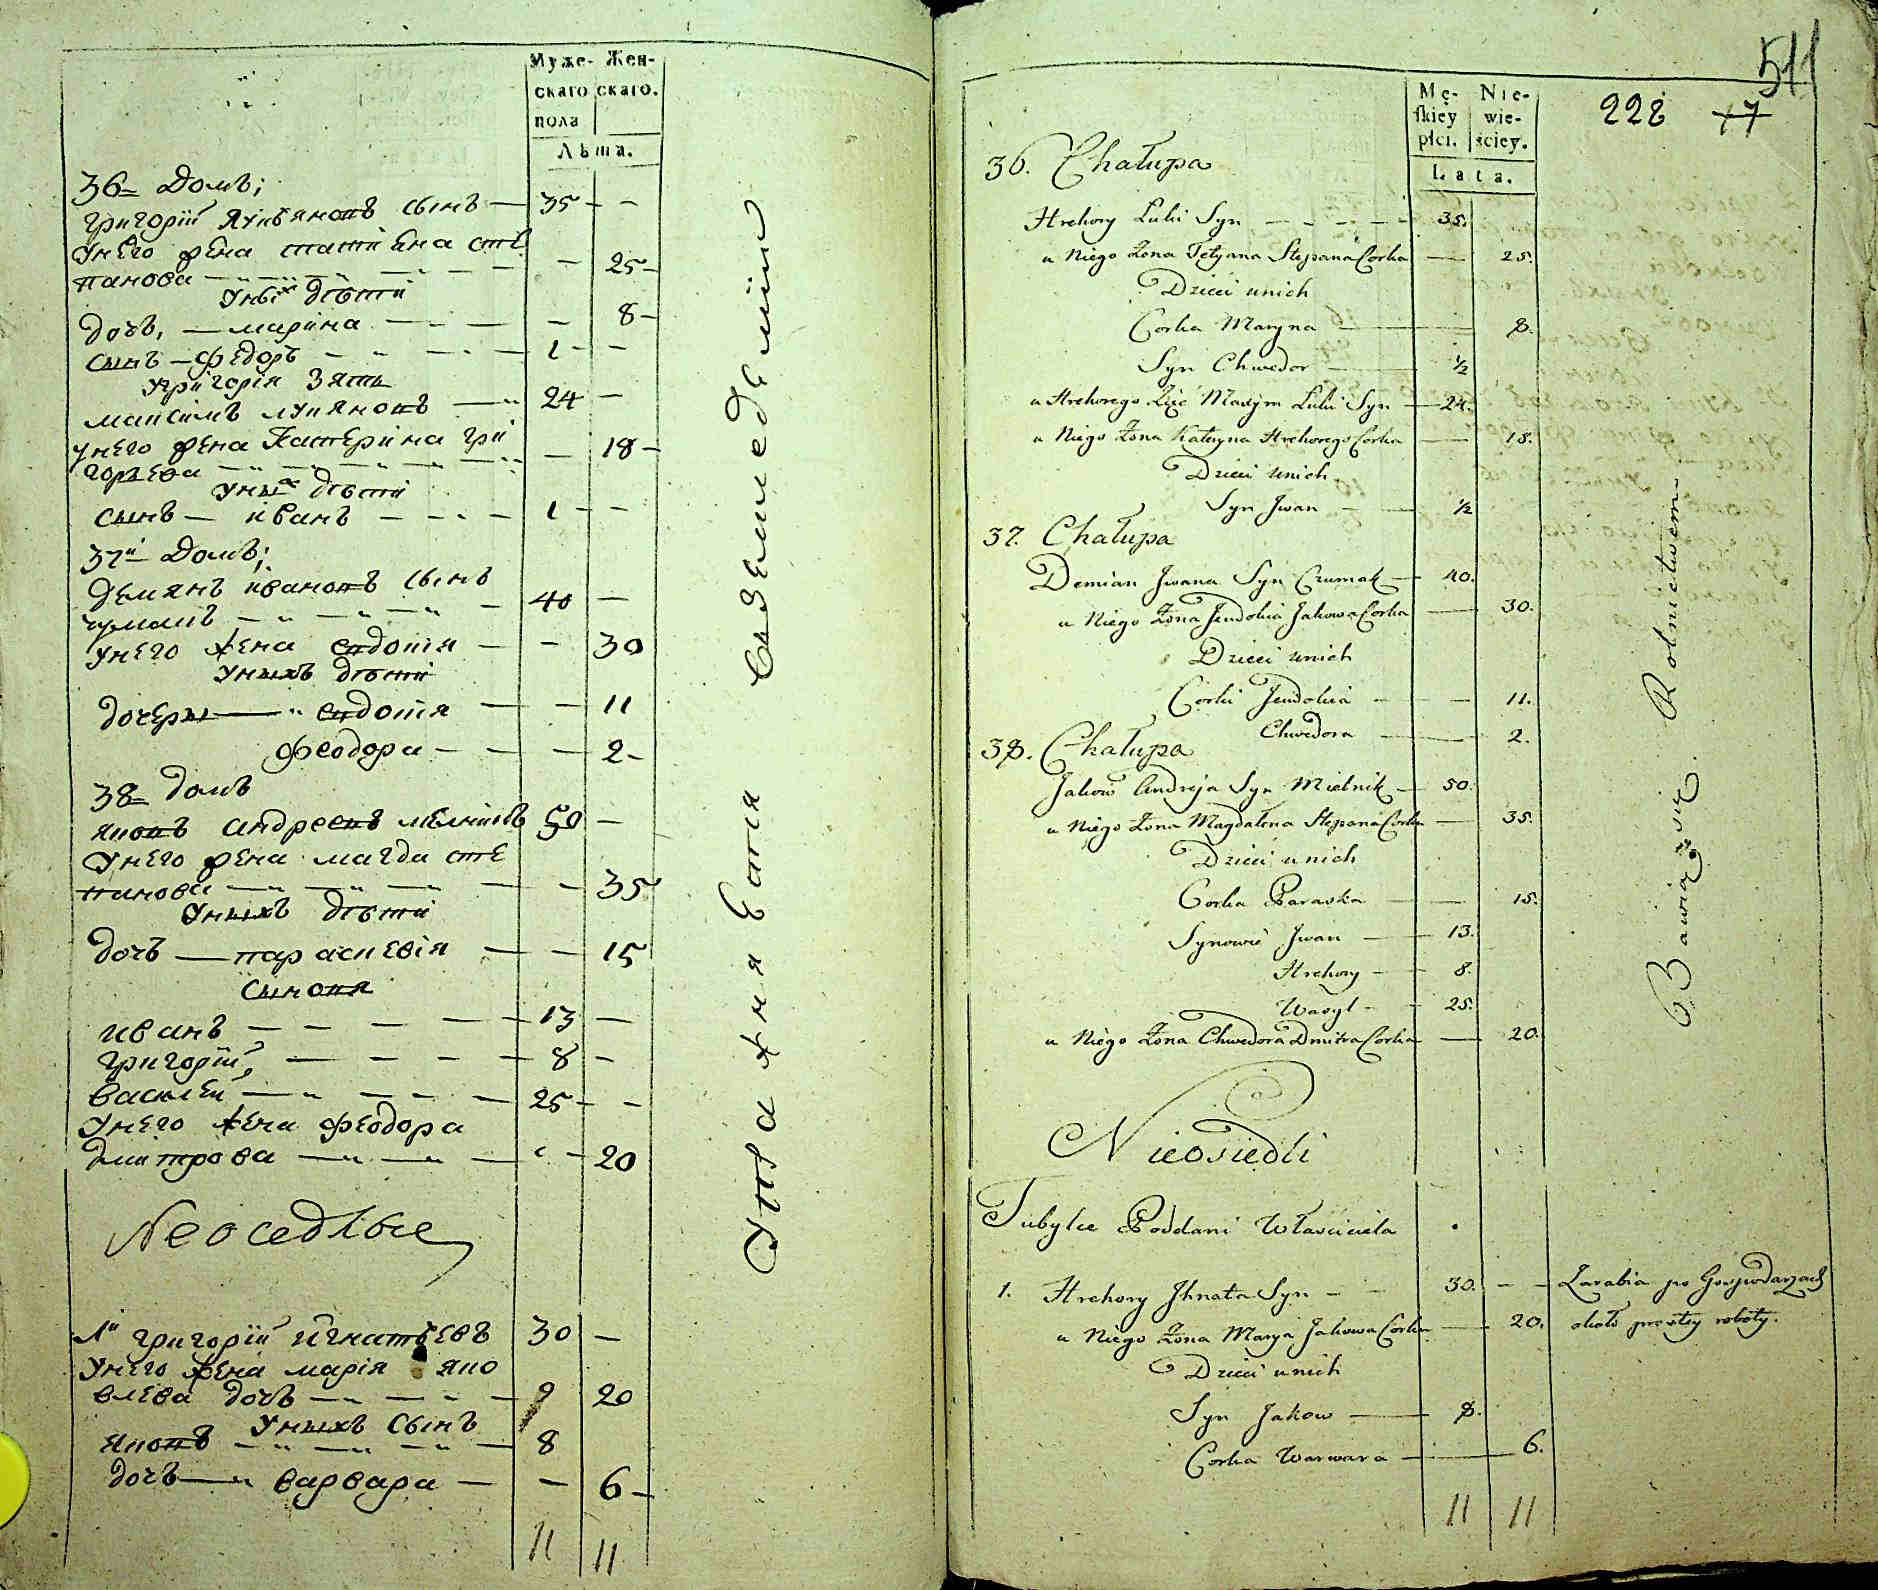 Муже- Жен-
скаго скаго.
пола
Лѣта.
36 Домъ;
григорій Лукьяновъ сынъ — 35 - -
унего жена татіена сте
панова — — 25 -
уныхъ дѣти
дочь, — марина — — 8 -
сынъ — федоръ — 1 - -
Григорія зять
максимъ лукяновъ — 24 —
унего жена Катерина гри
горьева — — 18 -
уныхъ дѣти
сынъ — иванъ — 1 - -
37й Домъ;
Демянъ ивановъ сынъ
чумакъ — 40 —
унего жена евдотя — - 30
уныхъ дѣти
дочеры — евдотя — — 11
феодора — — 2 -
38 домъ
яковъ андреевъ мелникъ 50 —
унего жена магда сте
панова — — - 35
уныхъ дѣти
дочъ — параскевія — — 15
сыновя
иванъ — — — 13 —
григорій, — — — 8 —
василей — — 25 - -
унего жена феодора
дмитрова — — - 20
Неоседлые
1й григорій игнатьевъ 30 —
унего жена марія яко
влева дочь — — 20
уныхъ сынъ
яковъ — — 8
дочъ — варвара — — 6 -
11 11
Упражняется въ земледеліи
511
228 17
Mę- Nie-
skiey wie-
płci. ściey.
Lata.
36. Chałupa
Hrehory Łuki Syn — 35.
u Niego Żona Tetyana Stepana Corka — 25.
Dzieci unich
Corka Maryna — 8.
Syn Chwedor — ½
u Hrehorego Zięć Maxym Łuki Syn — 24.
u Niego Żona Kateryna Hrehorego Corka — 18.
Dzieci unich
Syn Jwan — ½
37. Chałupa
Demian Jwana Syn Czumak — 40.
u Niego Żona Jewdokia Jakowa Corka — 30.
Dzieci unich
Corki Jewdokia — 11.
Chwedora — 2.
38. Chałupa
Jakow Andreja Syn Mielnik — 50.
u Niego Żona Magdalena Stepana Corka — 35.
Dzieci unich
Corka Paraska — 15.
Synowie Jwan — 13.
Hrehory — 8.
Wasyl — 25.
u Niego Żona Chwedora Dmitra Corka — 20.
Bawią się Rolnictwem
Nieosiedli
Tubylce Poddani Właściciela
1. Hrehory Jhnata Syn — 30. — Zarabia po Gospodarzach
u Niego Żona Marya Jakowa Corka — 20. około prostey roboty.
Dzieci unich
Syn Jakow — 8.
Corka Warwara — 6.
11 11